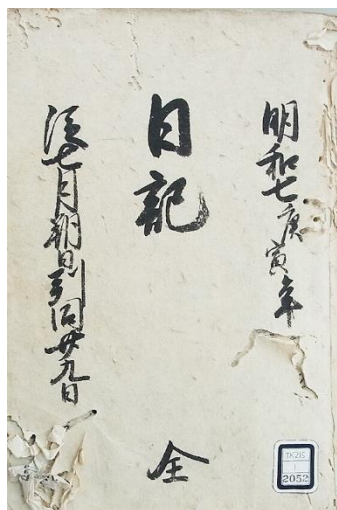 明和七庚寅年
日記
全
従七月朔日到同廿九日
TK215
1
2052